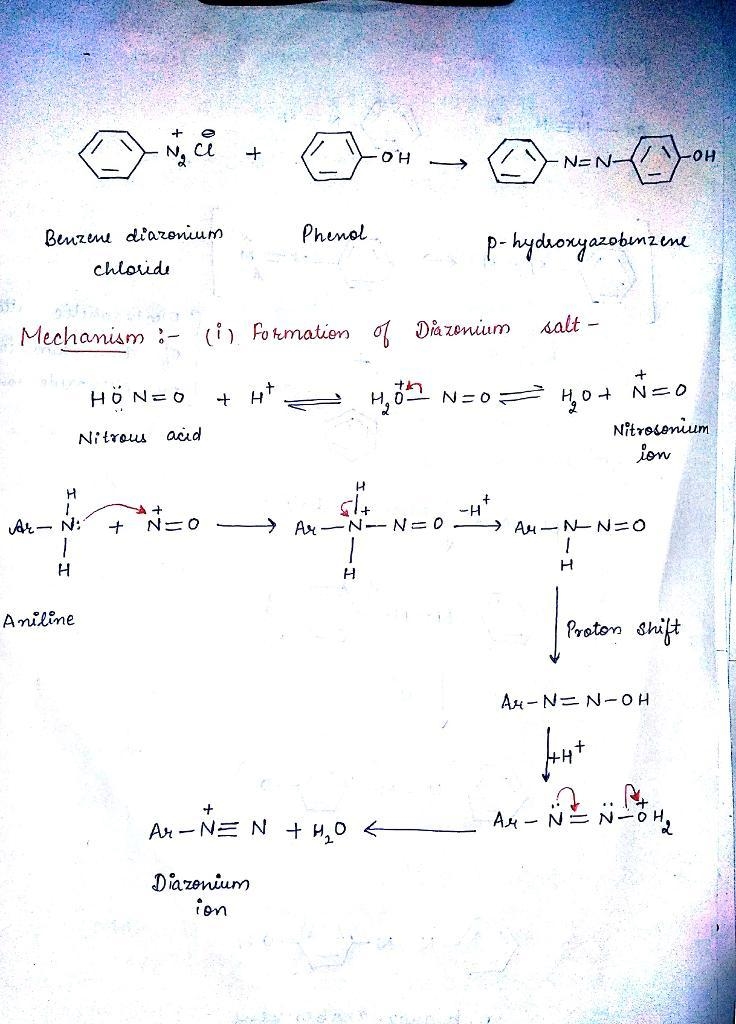 N₂⁺ Cl⊖ + OH → N=N OH
Benzene diazonium chloride Phenol p-hydroxyazobenzene
Mechanism :- (i) Formation of Diazonium salt -
HÖ N=O + H⁺ ⇌ H₂O⁺— N=O ⇌ H₂O + N⁺=O
Nitrous acid Nitrosonium ion
H H
Ar—N: + N⁺=O → Ar—N⁺—N=O -H⁺→ Ar—N—N=O
H H H
Aniline
Proton shift
Ar-N=N-OH
+H⁺
Ar—N⁺≡N + H₂O ← Ar—N̈=N̈—O⁺H₂
Diazonium
ion